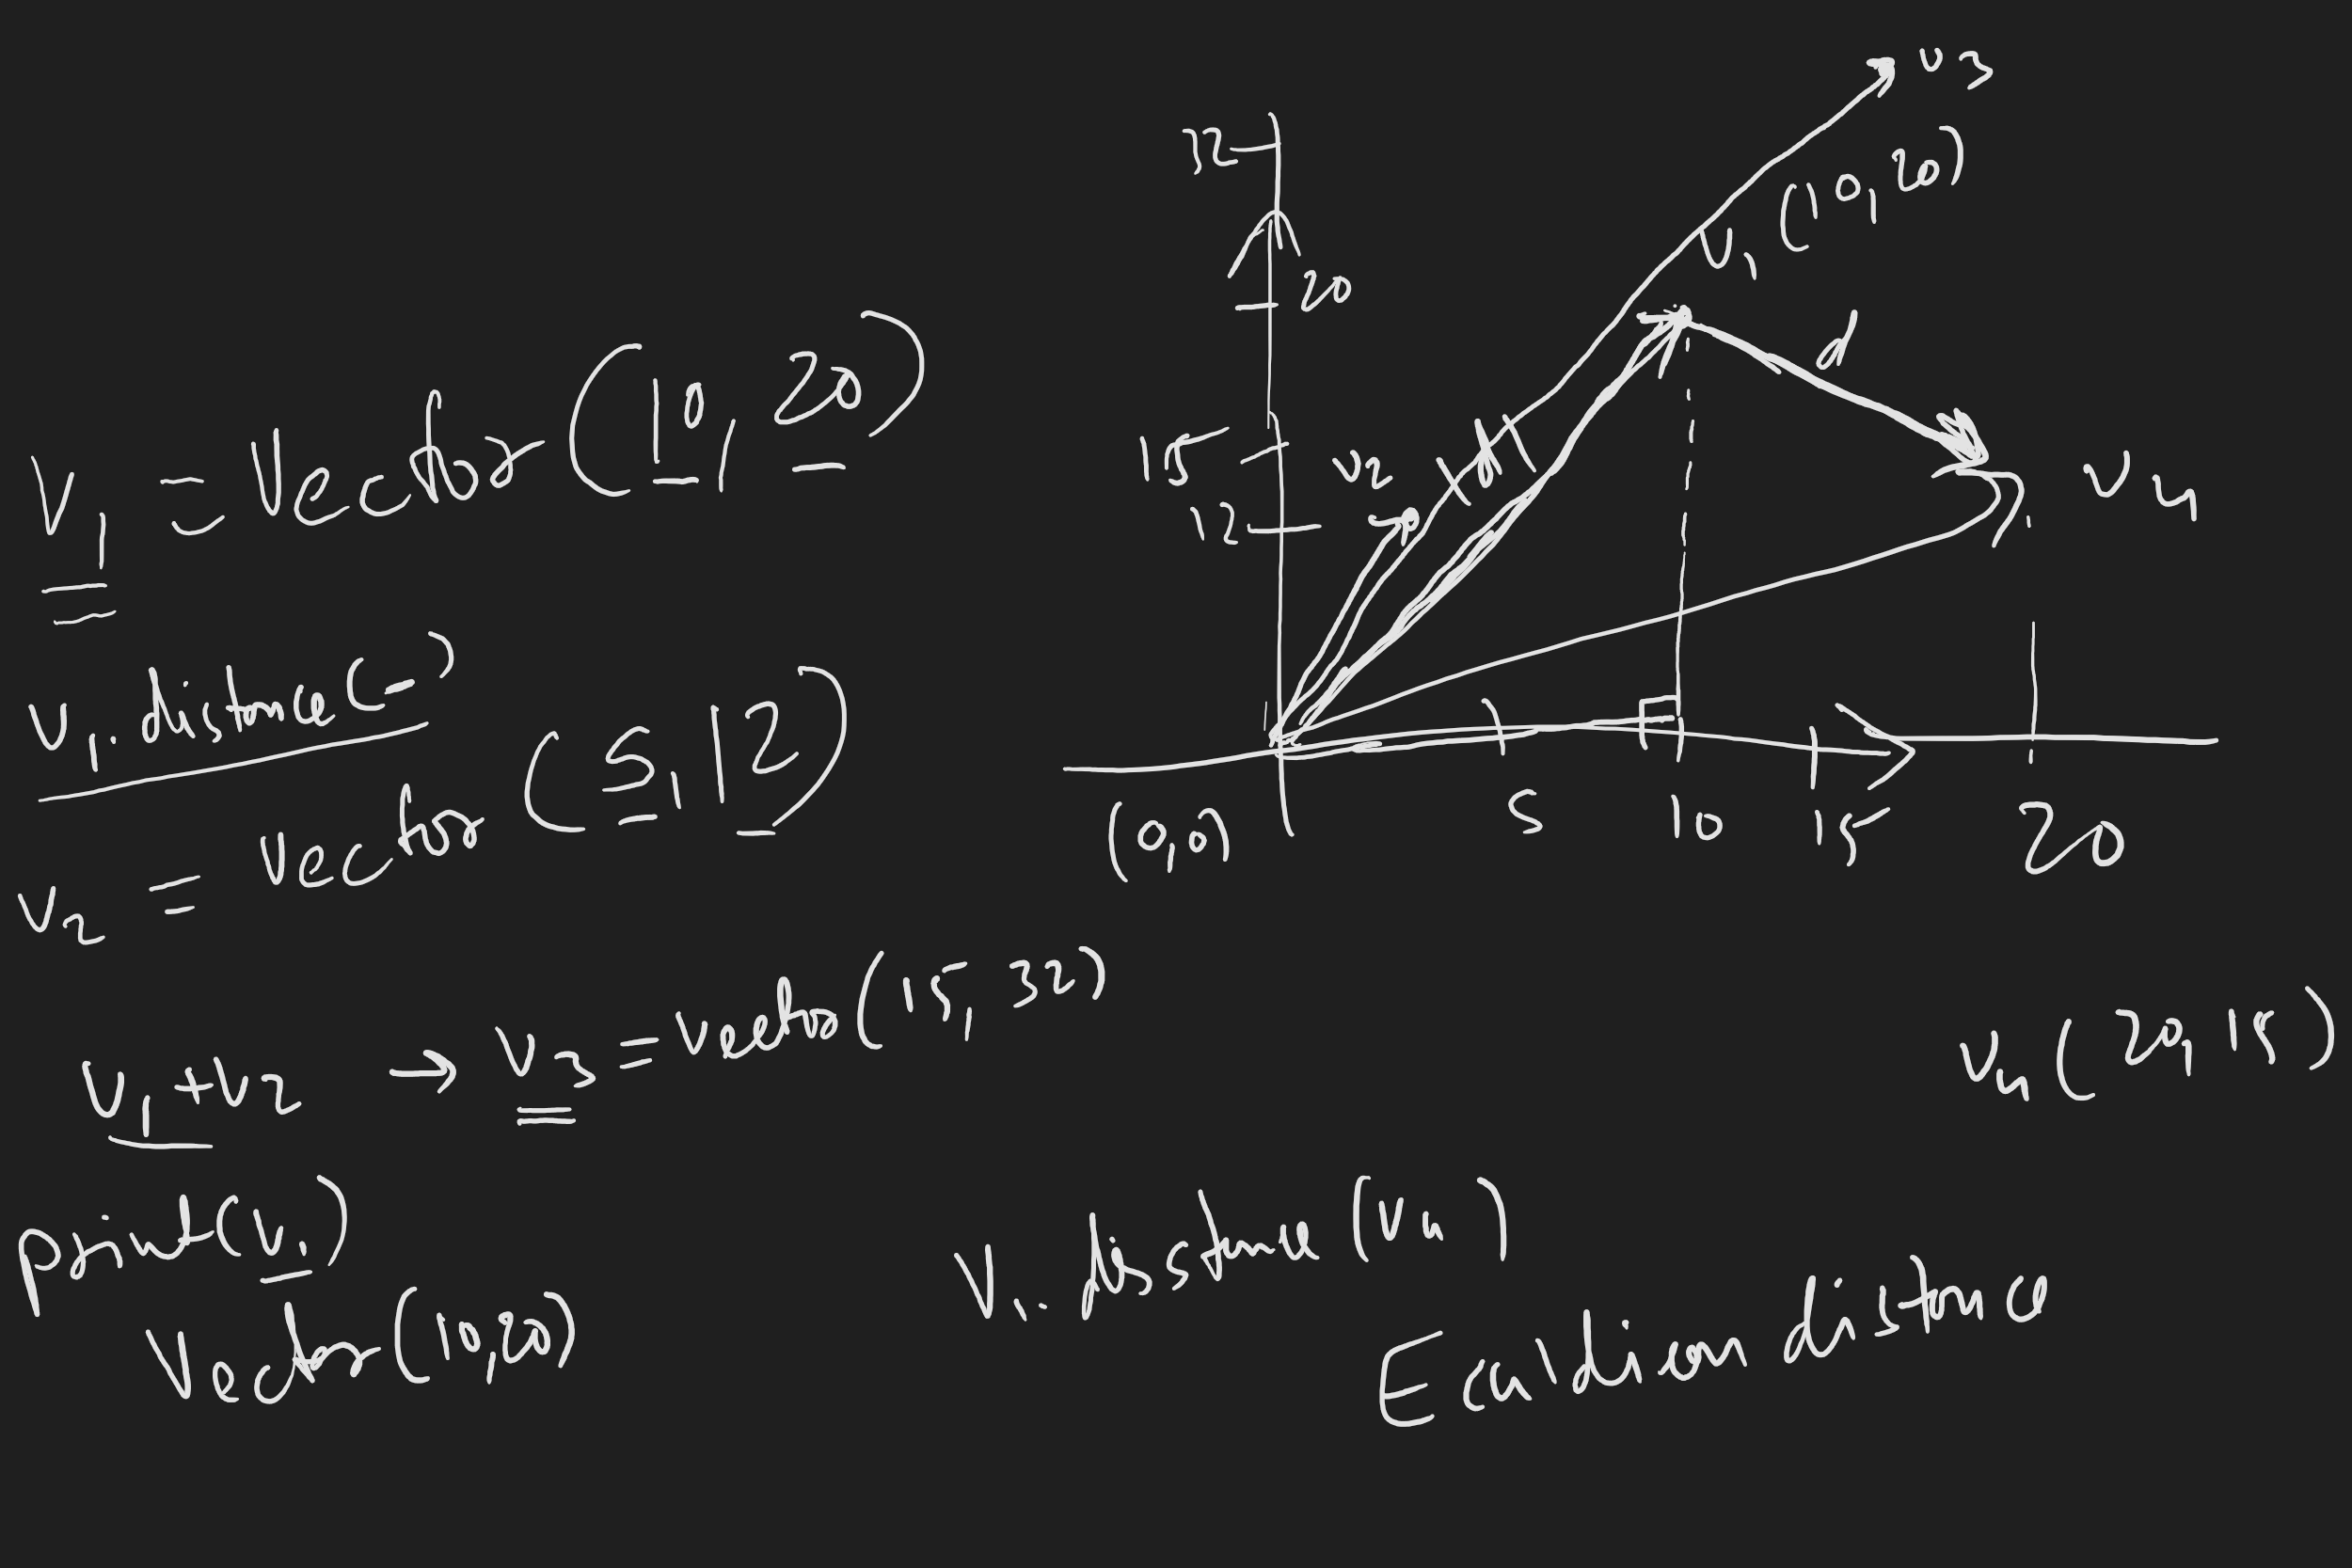 V1 = Vector (10, 20)
V1.distance(_)
V2 = Vector (5, 12)
V1+V2 → V3 = Vector (15, 32)
print(V1)
Vector(10,20)
32
20
15
12
(0,0)
5
10
15
20
V3
V1 (10,20)
V2
d
V4
V4 (20, 15)
V1.distance (V4)
Ecaldian distance